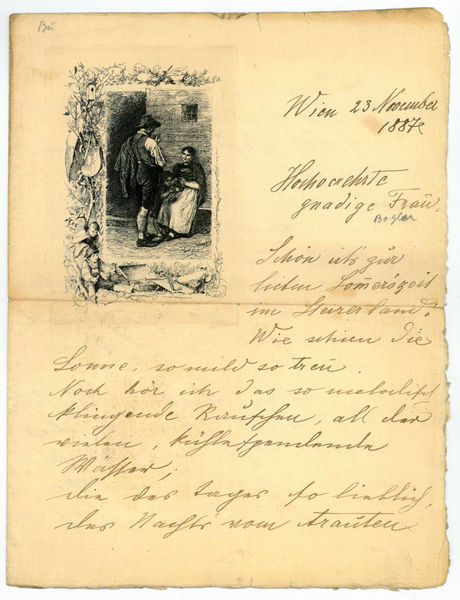 Bu.
Wien 23 November
1887
Hochverehrte
gnädige Frau.
Bogler
Schön ist's zur
lieben Sommerszeit
im Steierland.
Wie schien die
Sonne, so mild so treu.
Noch hör ich das so melodisch
klingende Rauschen, all der
vielen, kühlespendende
Wässer;
die des Tages so lieblich,
des Nachts vom trauten